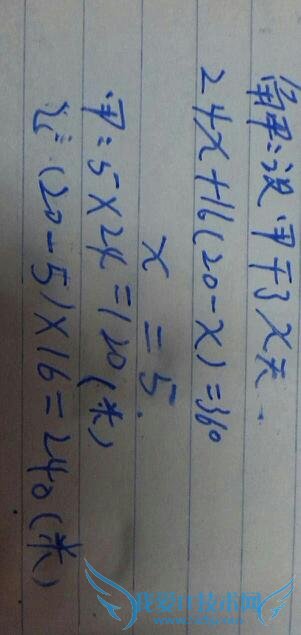 解：设甲干了x天.
24x+16(20-x)=360
x=5.
甲：5×24=120(米)
乙：(20-5)×16=240(米)
我爱IT技术网